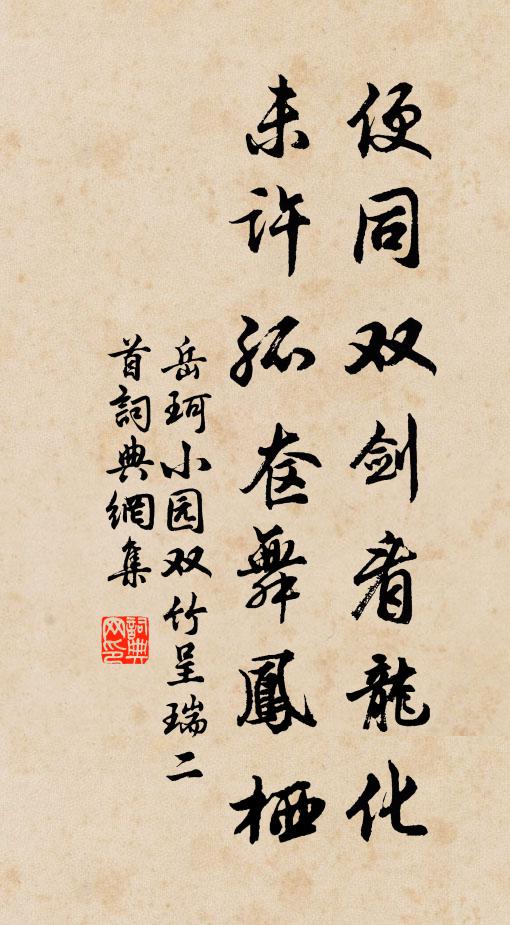 便同双剑看龍化
未许孤奁舞鳳栖
岳珂小园双竹呈瑞二
首詞典網集
詞典
网印